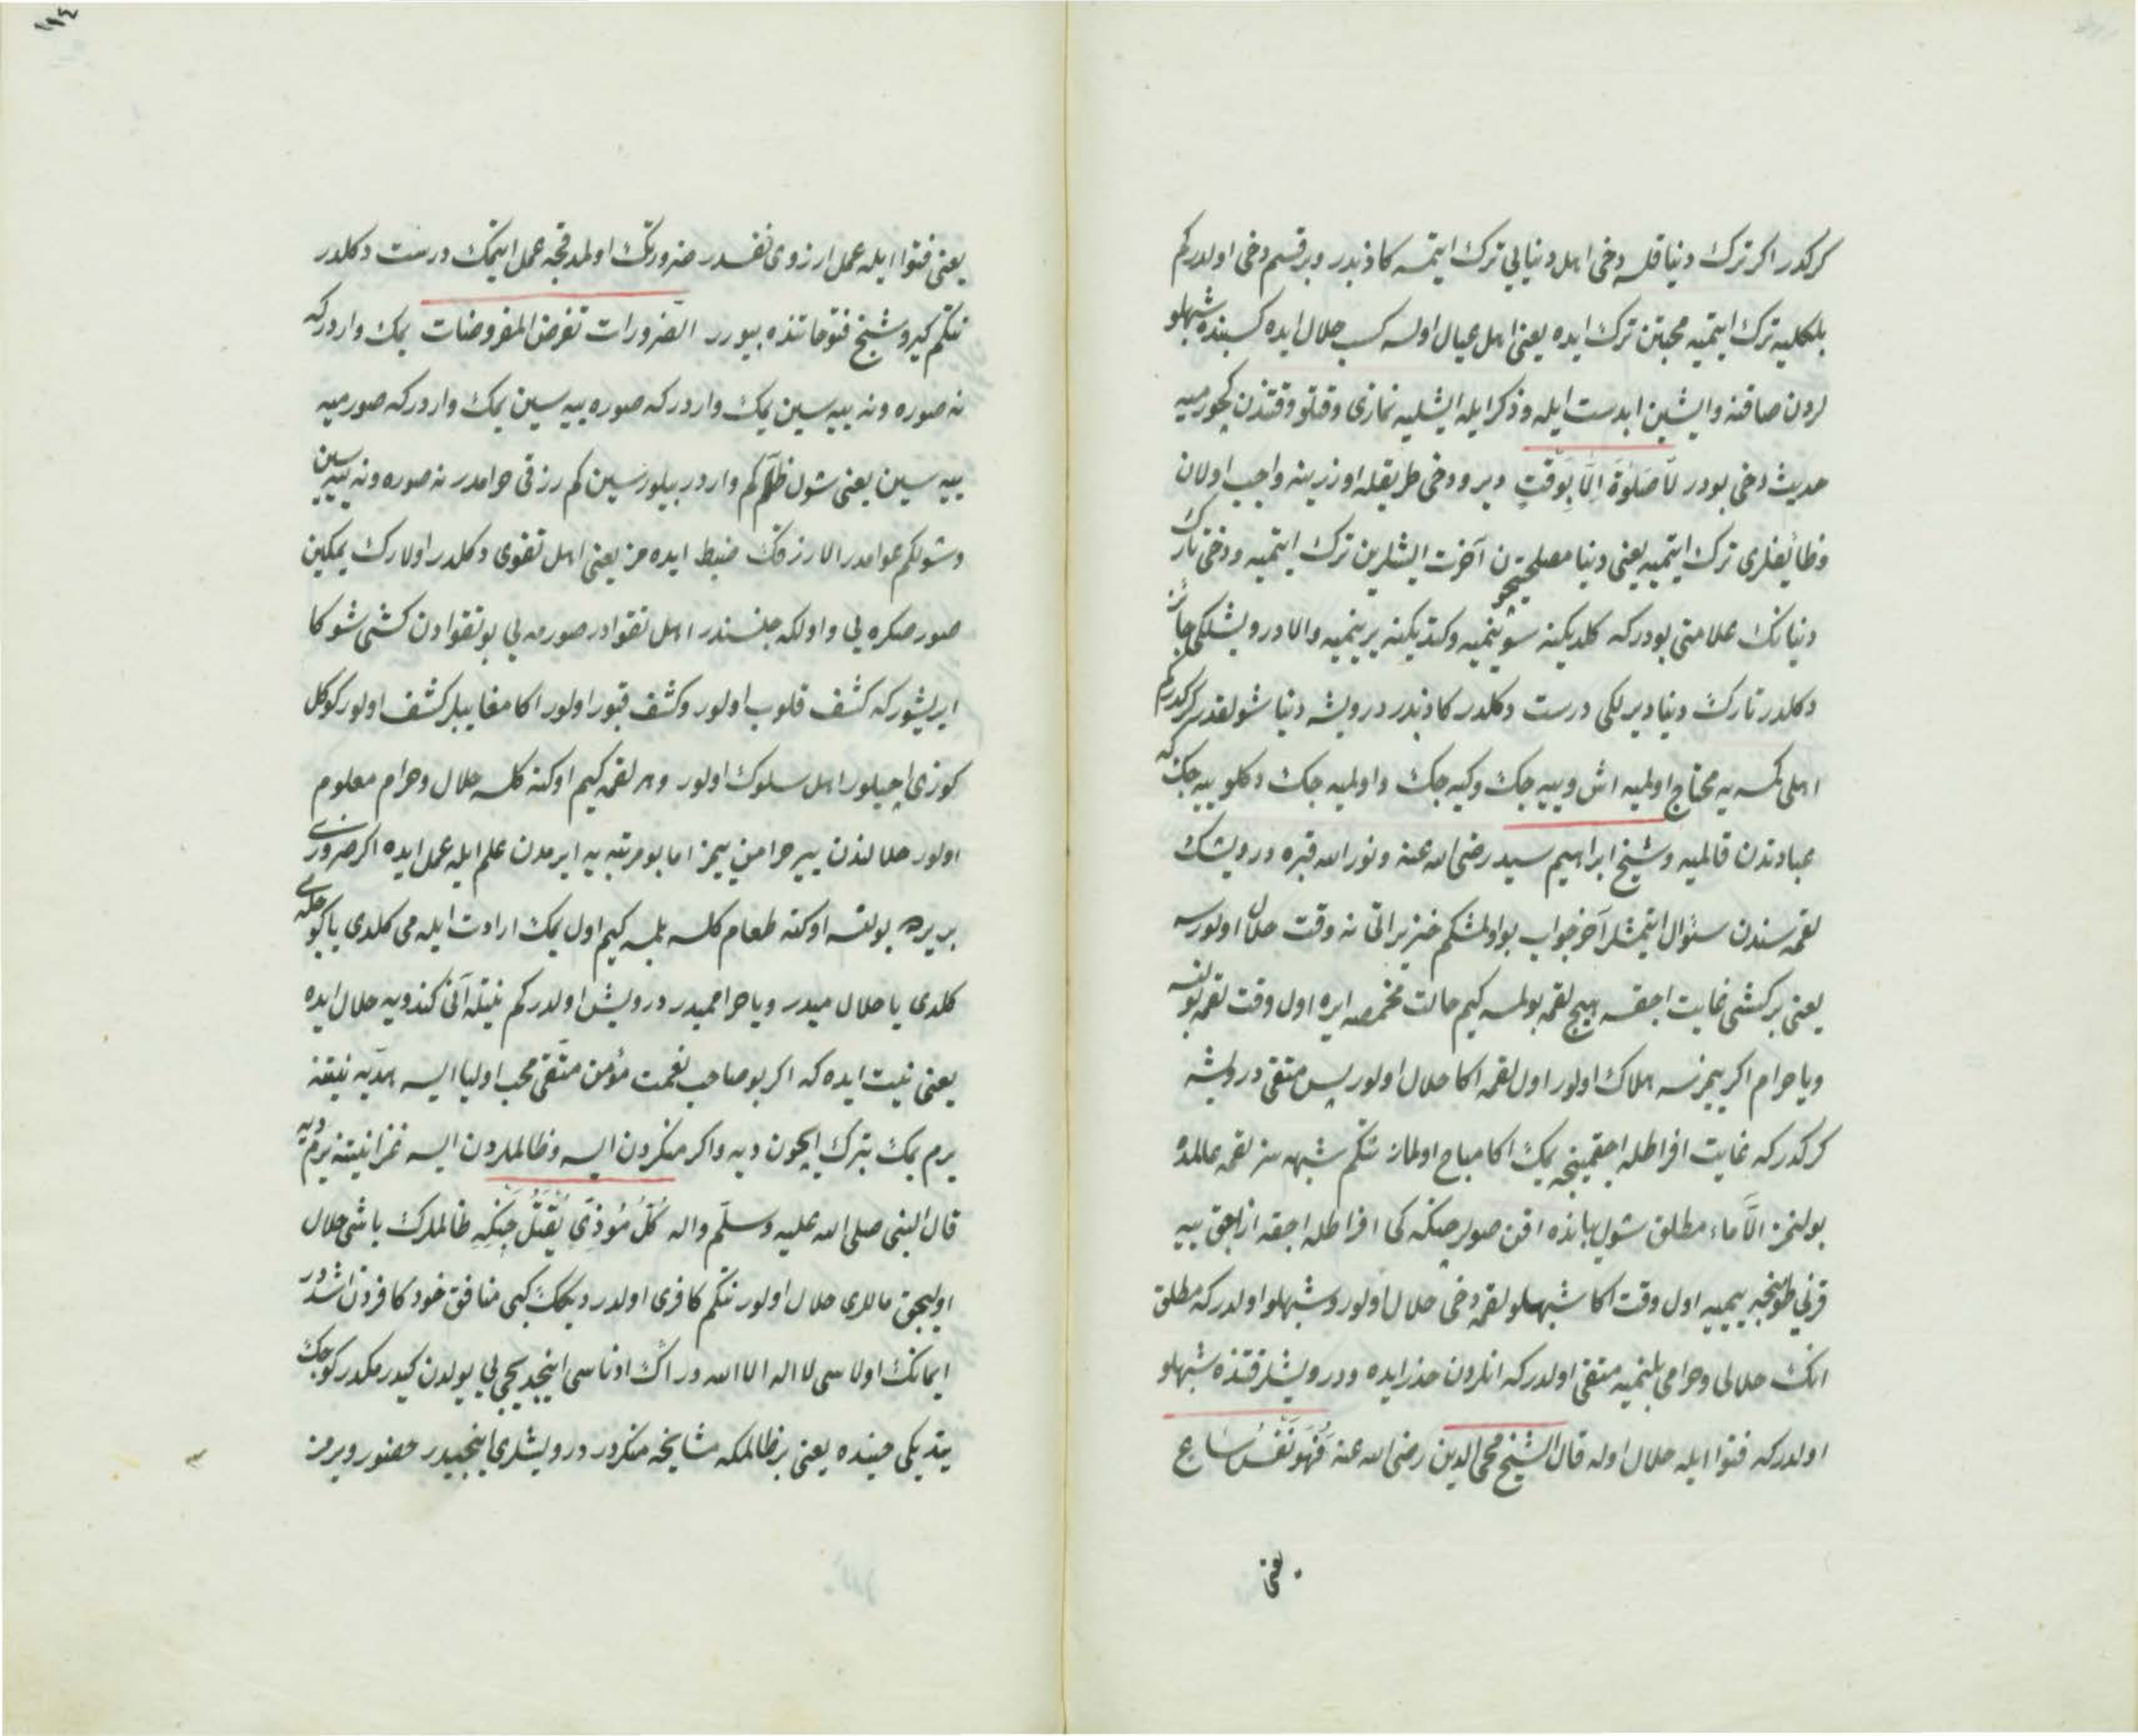 كركدر اكر ترك دنيا قلسه دخی اهل دنیایی ترك ایتمسه كاذبدر و بر قسم دخی اولدركم
بلكلیه ترك ایتمیه محبتن ترك ایده یعنی اهل عیال اولسه كسب حلال ایده كسبنده شبهلو
لردن صاقنه و ایشین ابدست ایله و ذكر ایله ایشلیه نمازی وقتلو وقتندن كچورمیه
حدیث دخی بودر لَا صَلٰوةَ اِلَّا بِوَقْتٍ دیر و دخی طریقله اوزرینه واجب اولان
وظائفلری ترك ایتمیه یعنی دنیا مصلحتیچون آخرت ایشلرین ترك ایتمیه و دخی تارك
دنیانك علامتی بودركه كلدیكینه سوینمیه و كتدیكینه یرینمیه و الا درویشلكی جائز
دكلدر تارك دنیا دیرلكی درست دكلدر كاذبدر درویشه دنیا شولقدر كركدركم
اهلی كمسه یه محتاج اولمیه اش و ییه جك و كیه جك و اولمیه جك دكلو ییه جك كه
عبادتدن قالمیه و شیخ ابراهیم سید رضی الله عنه و نور الله قبره درویشك
لقمه سندن سئوال ایتمشلر آخر جواب بو اولمشكم خنزیر اتی نه وقت حلال اولورسه
یعنی بر كشی غایت اجقسه هیچ لقمه بولمسه كیم حالت مخمصه ایره اول وقت لقمه بولنسه
و یا حرام اكر ییمزسه هلاك اولور اول لقمه اكا حلال اولور پس متقی درویشه
كركدركه غایت افراطله اجقمینجه یمك اكا مباح اولماز نتكم شبهه سز لقمه عالمده
بولنمز الَّا ماء مطلق شول یبانده اقن صولر صكره كی افراطله اجقه ازاجق ییه
قرنی طوینجیه ییمیه اول وقت اكا شبهلو لقمه دخی حلال اولور و شبهلو اولدركه مطلق
انك حلالی و حرامی بلنمیه متقی اولدركه انلردن حذر ایده و درویشلر قتنده شبهلو
اولدركه فتوا ایله حلال اوله قال الشیخ محی الدین رضی الله عنه فَهُوَ نَفْسٌ
یعنی
یعنی فتوا ایله عمل ارزوی نفسدر ضرورتك اولمدقجه عمل ایتمك درست دكلدر
نتكم كیرو شیخ فتوحاتنده بیورر الضّرورات تفرض المفروضات یمك واردركه
نه صوره و نه ییه سین یمك واردركه صوره ییه سین یمك واردركه صورمیه
ییه سین یعنی شول ظالم كم واردر بیلورسین كم رزقی حرامدر نه صوره و نه ییه سین
و شولكم عوامدر الارزقك ضبط ایده مز یعنی اهل تقوی دكلدر اولارك یمكین
صور صكره یی و اولكه جنسندر اهل تقوادر صورمه یی بو تقوادن كشی شوكا
ایریشور كه كشف قلوب اولور و كشف قبور اولور اكا مغایبلر كشف اولور كوكل
كوزی اچیلور اهل سلوك اولور و هر لقمه كیم اوكنه كلسه حلال و حرام معلوم
اولور حلالندن ییر حرامین ییمز اما بو مرتبه یه ایرمدن علم ایله عمل ایده اكر ضروری
بر یرده بولنسه اوكنه طعام كلسه بلمسه كیم اول یمك ارادت ایله می كلدی یا كوجله می
كلدی یا حلال میدر و یا حرامیدر درویش اولدركم نیتله آنی كندویه حلال ایده
یعنی نیت ایده كه اكر بو صاحب نعمت مؤمن متّقی محب اولیا ایسه هدیه نیتنه
یرم یمك تبرك ایچون دیه و اكر منكردن ایسه و ظالملردن ایسه غزا نیتنه یرم دیه
قال النبی صلی الله علیه وسلّم و اله كُلُّ مُوْذِیٍ یُقْتَلُ ظالملرك باشی حلال
اولیجق ماللری حلال اولور نتكم كافری اولدر دیكك كبی منافق خود كافردن اشددر
ایمانك اولاسی لا اله الا الله در انك ادناسی اینجدیجی یی یولدن كیدرمكدر كوجك
یتدیكی حینده یعنی بر ظالمكه مشایخه منكردر درویشلری اینجیدر حضور ویرمز
١١٤